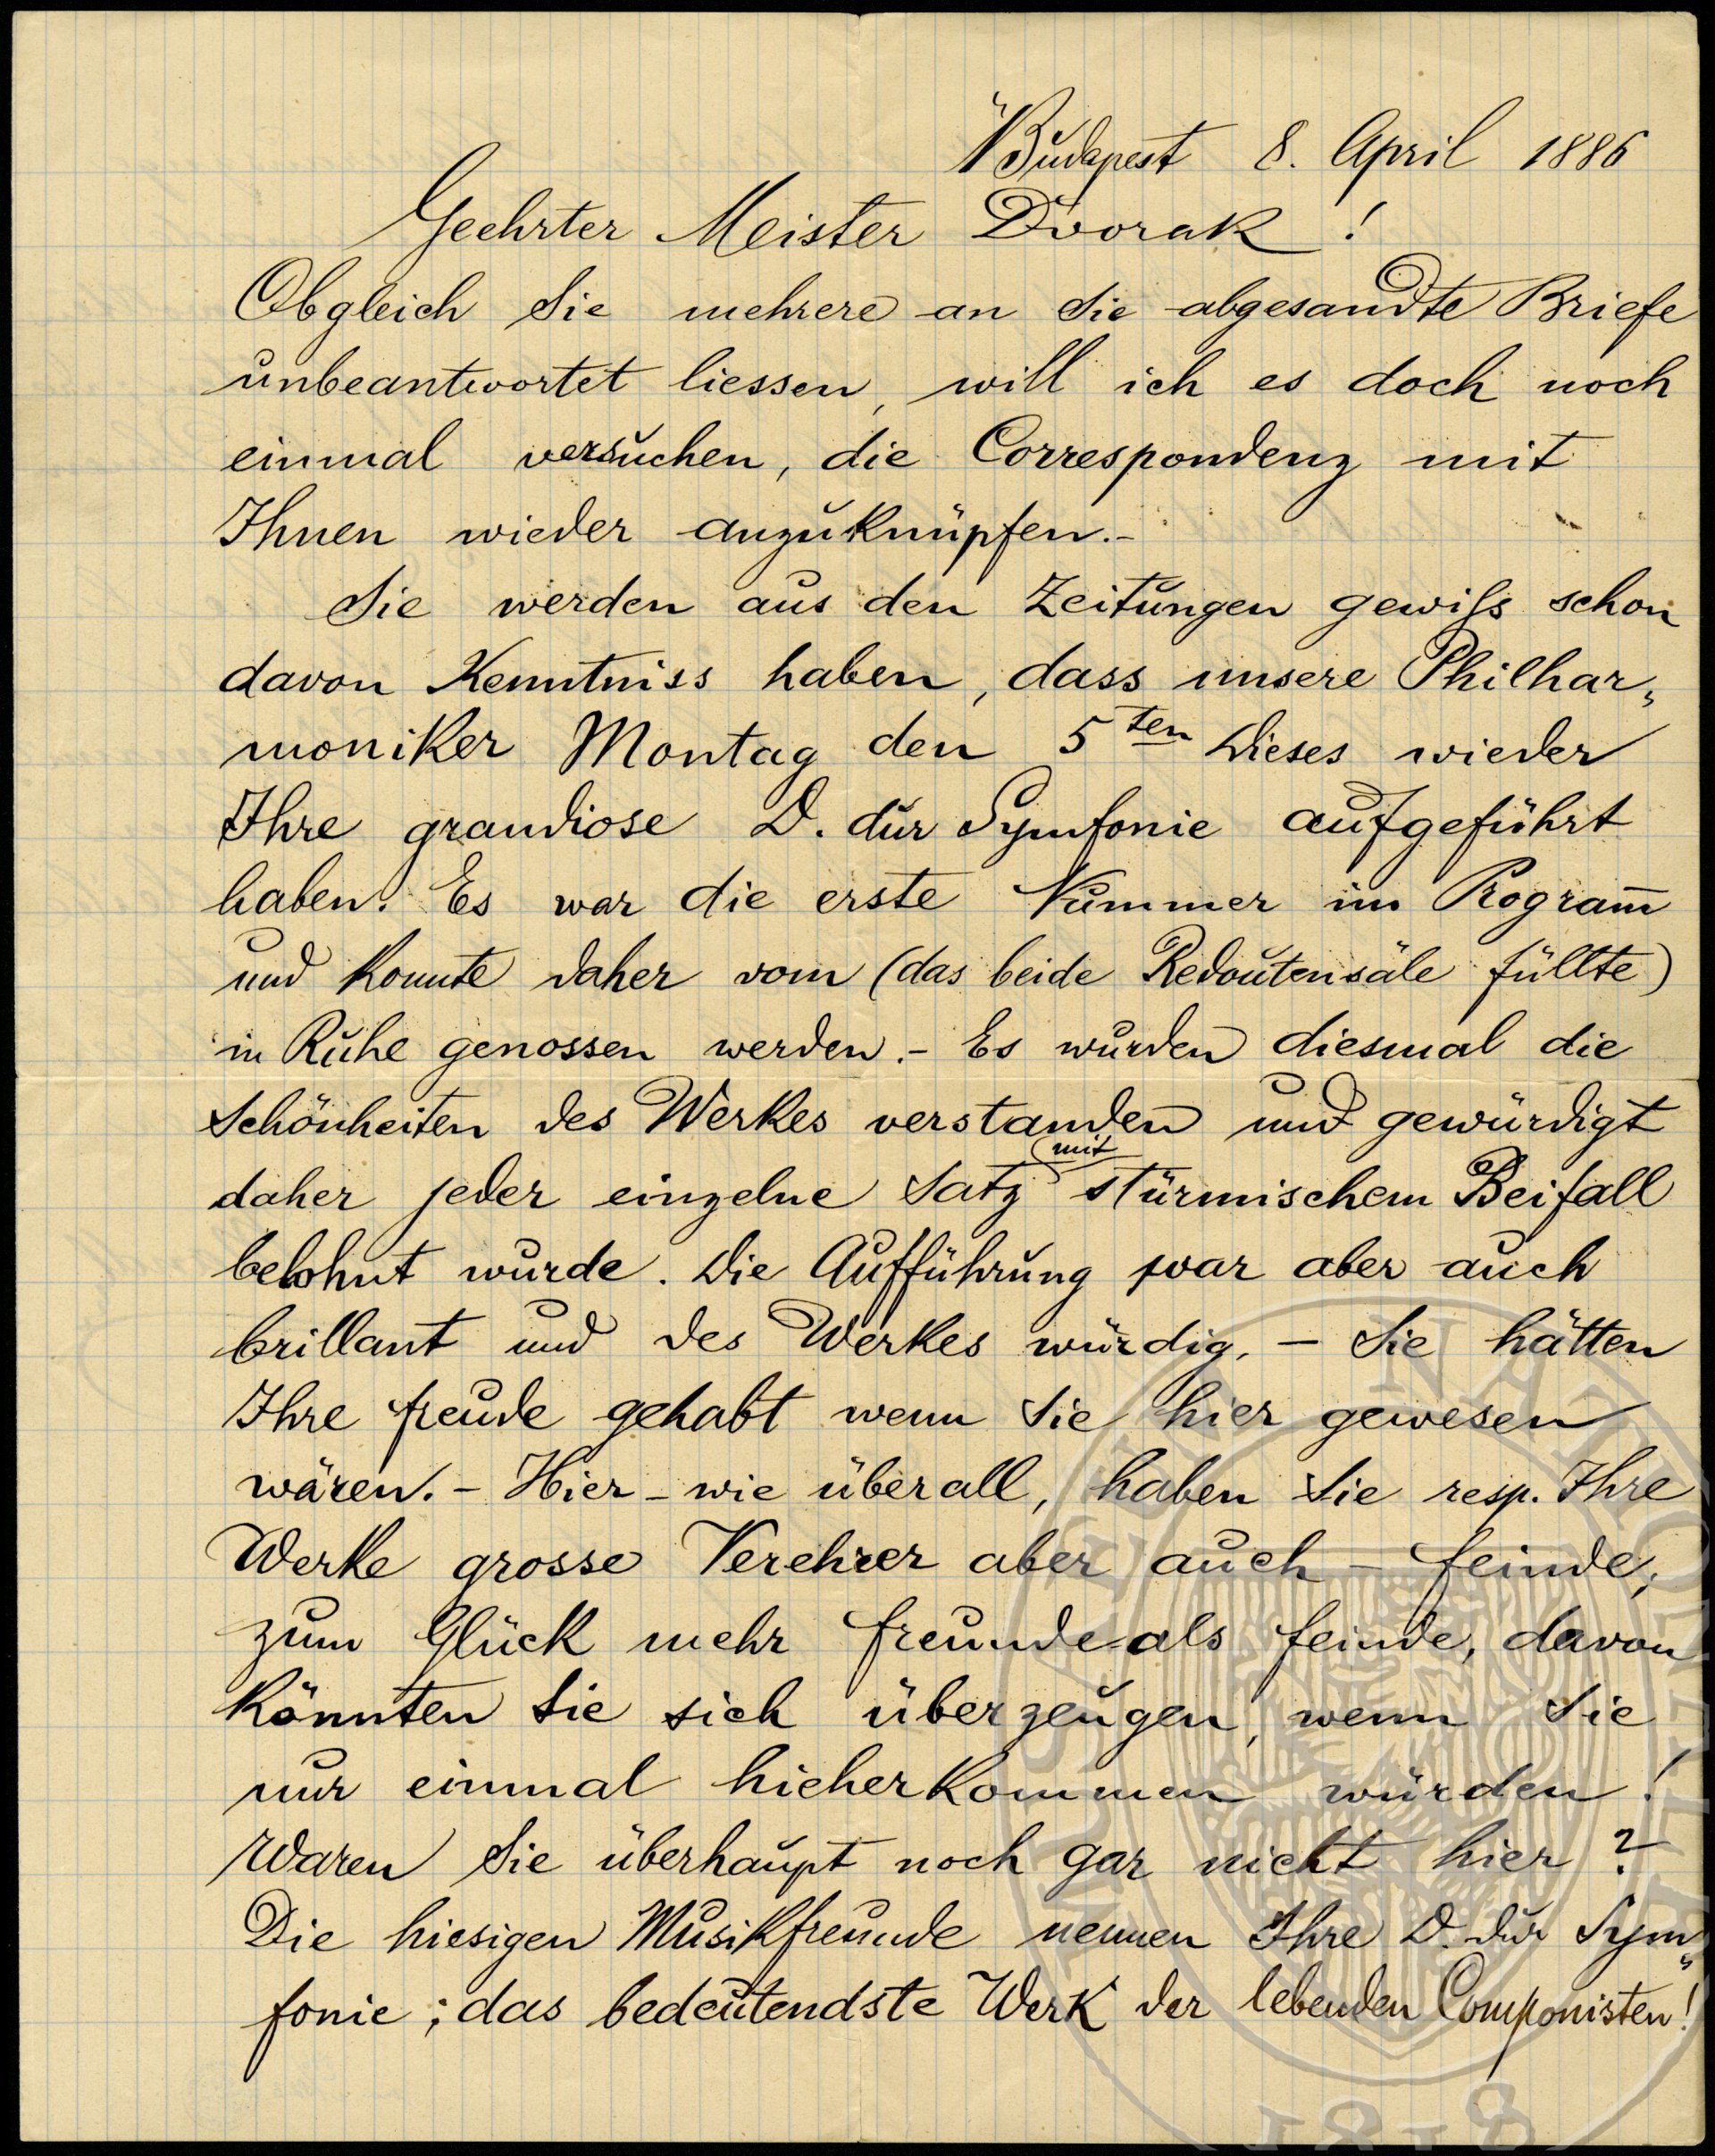 Budapest 8. April 1886
Geehrter Meister Dvorak !
Obgleich Sie mehrere an Sie abgesandte Briefe
unbeantwortet liessen, will ich es doch noch
einmal versuchen, die Correspondenz mit
Ihnen wieder anzuknüpfen.-
Sie werden aus den Zeitungen gewiss schon
davon Kenntniss haben, dass unsere Philhar„
moniker Montag den 5ten dieses wieder
Ihre grandiose D. dur Symfonie aufgeführt
haben. Es war die erste Nummer im Programm̄
und konnte daher vom (das beide Redoutensäle füllte)
in Ruhe genossen werden.- Es wurden diesmal die
Schönheiten des Werkes verstanden und gewürdigt
daher jeder einzelne Satz mit stürmischem Beifall
belohnt wurde. Die Aufführung war aber auch
brillant und des Werkes würdig. - Sie hätten
Ihre freude gehabt wenn Sie hier gewesen
wären. - Hier - wie überall, haben Sie resp. Ihre
Werke grosse Verehrer aber auch - feinde;
zum Glück mehr freunde als feinde, davon
könnten Sie sich überzeugen, wenn Sie
nur einmal hieherkommen würden !
Waren Sie überhaupt noch gar nicht hier ?
Die hiesigen Musikfreunde nennen Ihre D. dur Sym„
fonie ; das bedeutendste Werk der lebenden Componisten!
MUSEUM NATIONALE
1818